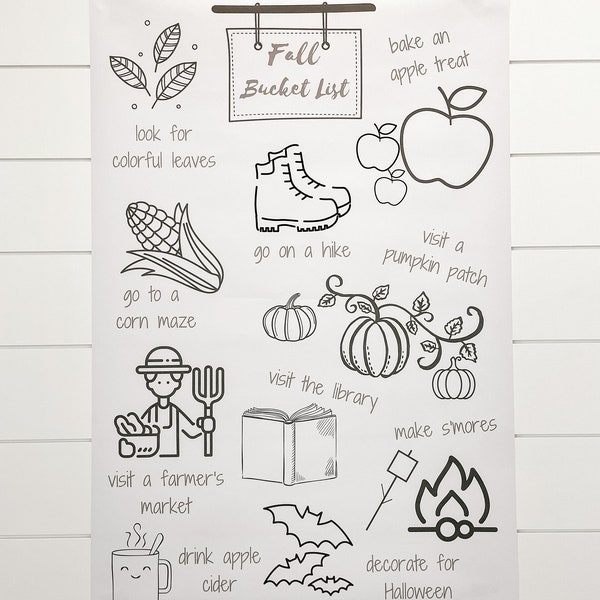 Fall
Bucket List
bake an
apple treat
look for
colorful leaves
go on a hike
visit a
pumpkin patch
go to a
corn maze
visit the library
make s'mores
visit a farmer's
market
drink apple
cider
decorate for
Halloween